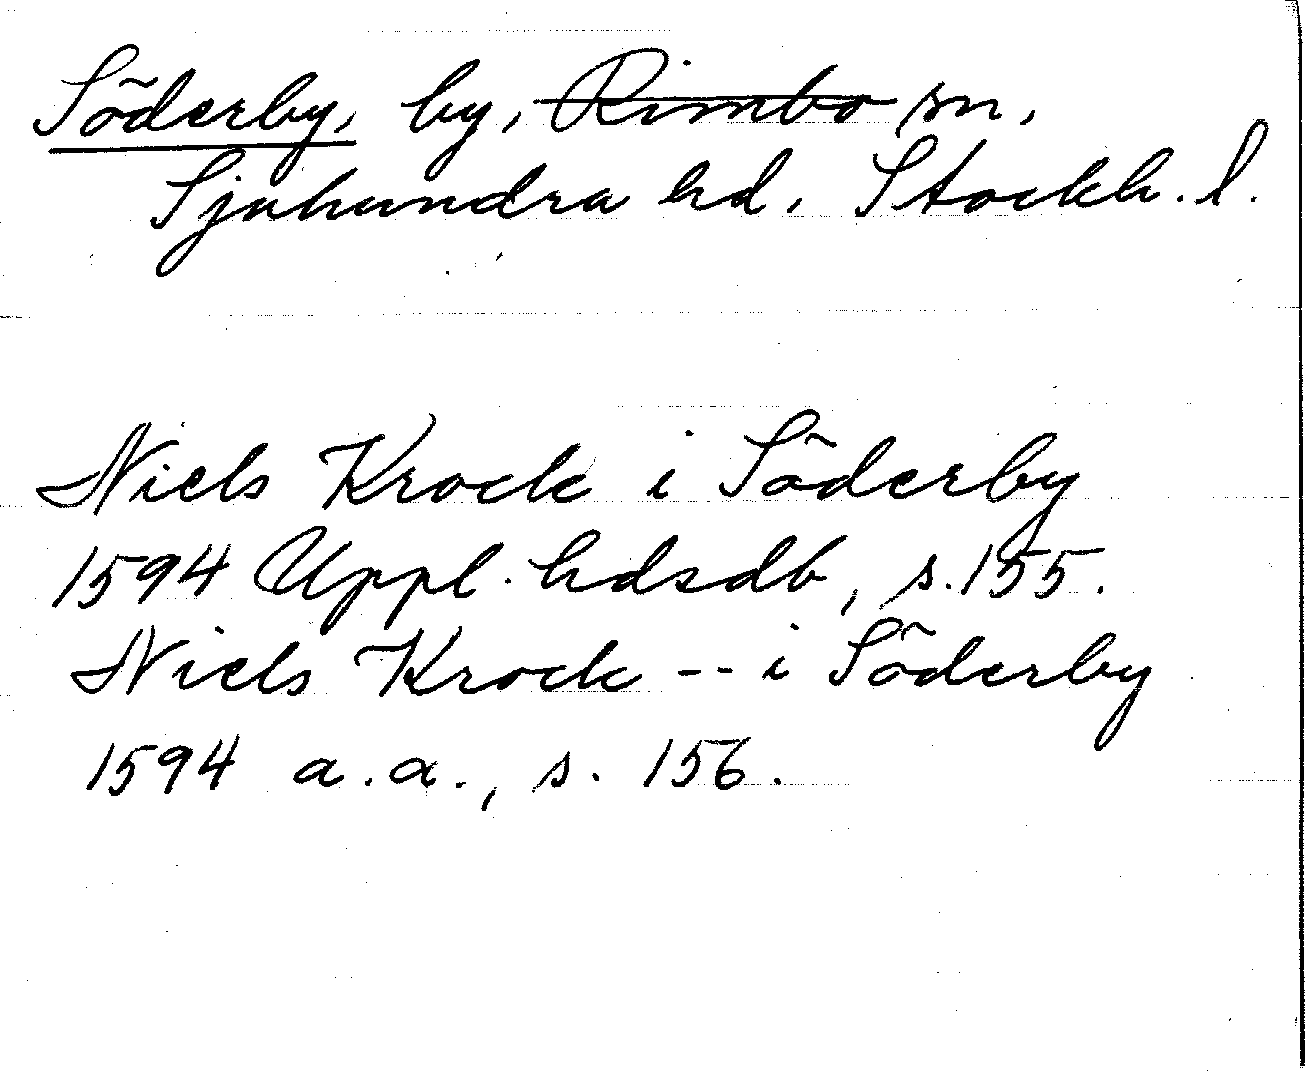 Söderby, by, Rimbo sn,
Sjuhundra hd, Stockh. l.
Niels Krock i Söderby
1594 Uppl. hdsdb, s. 155.
Niels Krock -- i Söderby
1594 a.a., s. 156.